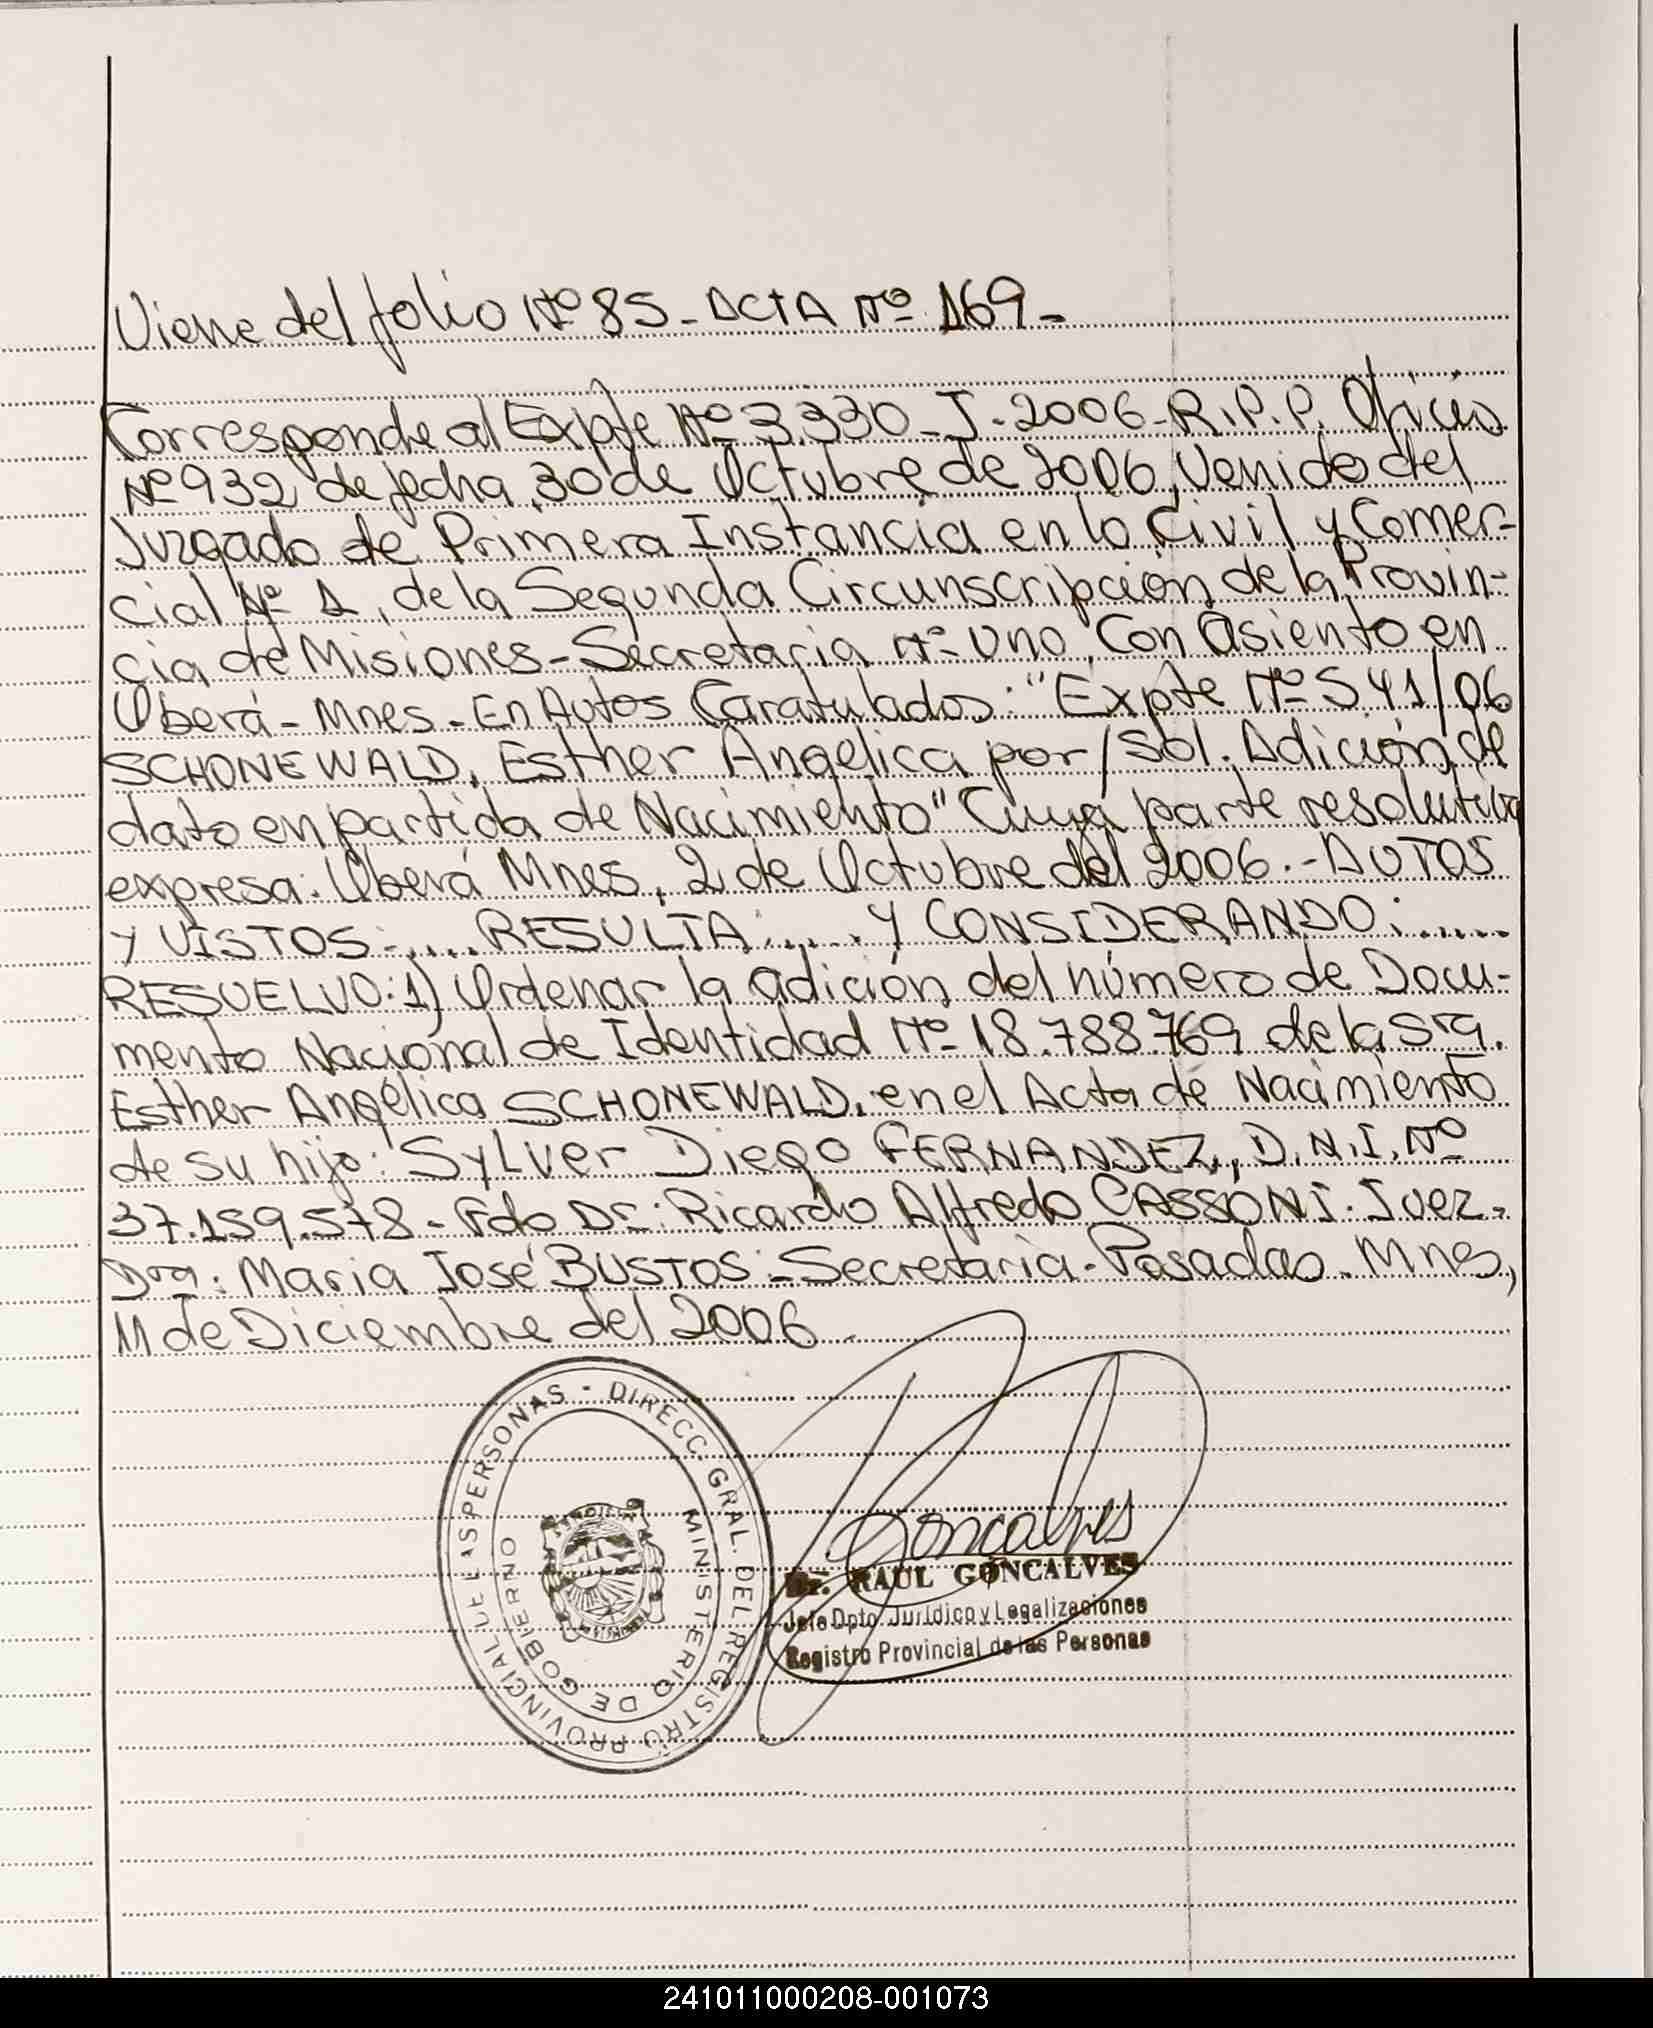 Viene del folio Nº 85 - ACTA Nº 169 -
Corresponde al Expte Nº 3.330 - J - 2006 - R.P.P. Oficio
Nº 932 de fecha 30 de Octubre de 2006, Venido del
Juzgado de Primera Instancia en lo Civil y Comer-
cial Nº 1, de la Segunda Circunscripción de la Provin-
cia de Misiones - Secretaria Nº Uno, Con Asiento en
Oberá - Mnes - En Autos Caratulados: "Expte Nº 541/06
SCHONEWALD, Esther Angelica por/Sol. Adición de
dato en partida de Nacimiento" Cuya parte resolutiva
expresa: Oberá Mnes, 2 de Octubre del 2006.- AUTOS
Y VISTOS:..... RESULTA:..... Y CONSIDERANDO:......
RESUELVO: 1) Ordenar la adición del número de Docu-
mento Nacional de Identidad Nº 18.788.769 de la Sra.
Esther Angélica SCHONEWALD, en el Acta de Nacimiento
de su hijo: SyLver Diego FERNANDEZ, D.N.I. Nº
37.159.578 - Fdo Dr: Ricardo Alfredo CASSONI. Juez -
Dra: Maria José BUSTOS - Secretaria - Posadas. Mnes,
11 de Diciembre del 2006
DIRECC. GRAL. DEL REGISTRO PROVINCIAL DE LAS PERSONAS -
MINISTERIO DE GOBIERNO
Goncalves
Dr. RAUL GONCALVES
Jefe Dpto. Jurídico y Legalizaciones
Registro Provincial de las Personas
241011000208-001073